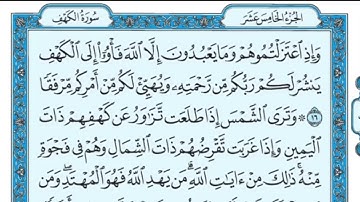 الجزء الخامس عشر سورة الكهف
وَإِذِ ٱعْتَزَلْتُمُوهُمْ وَمَا يَعْبُدُونَ إِلَّا ٱللَّهَ فَأْوُۥٓا۟ إِلَى ٱلْكَهْفِ
يَنشُرْ لَكُمْ رَبُّكُم مِّن رَّحْمَتِهِۦ وَيُهَيِّئْ لَكُم مِّنْ أَمْرِكُم مِّرْفَقًا
١٦ ۞ وَتَرَى ٱلشَّمْسَ إِذَا طَلَعَت تَّزَٰوَرُ عَن كَهْفِهِمْ ذَاتَ
ٱلْيَمِينِ وَإِذَا غَرَبَت تَّقْرِضُهُمْ ذَاتَ ٱلشِّمَالِ وَهُمْ فِى فَجْوَةٍ
مِّنْهُ ۚ ذَٰلِكَ مِنْ ءَايَٰتِ ٱللَّهِ ۗ مَن يَهْدِ ٱللَّهُ فَهُوَ ٱلْمُهْتَدِ ۖ وَمَن